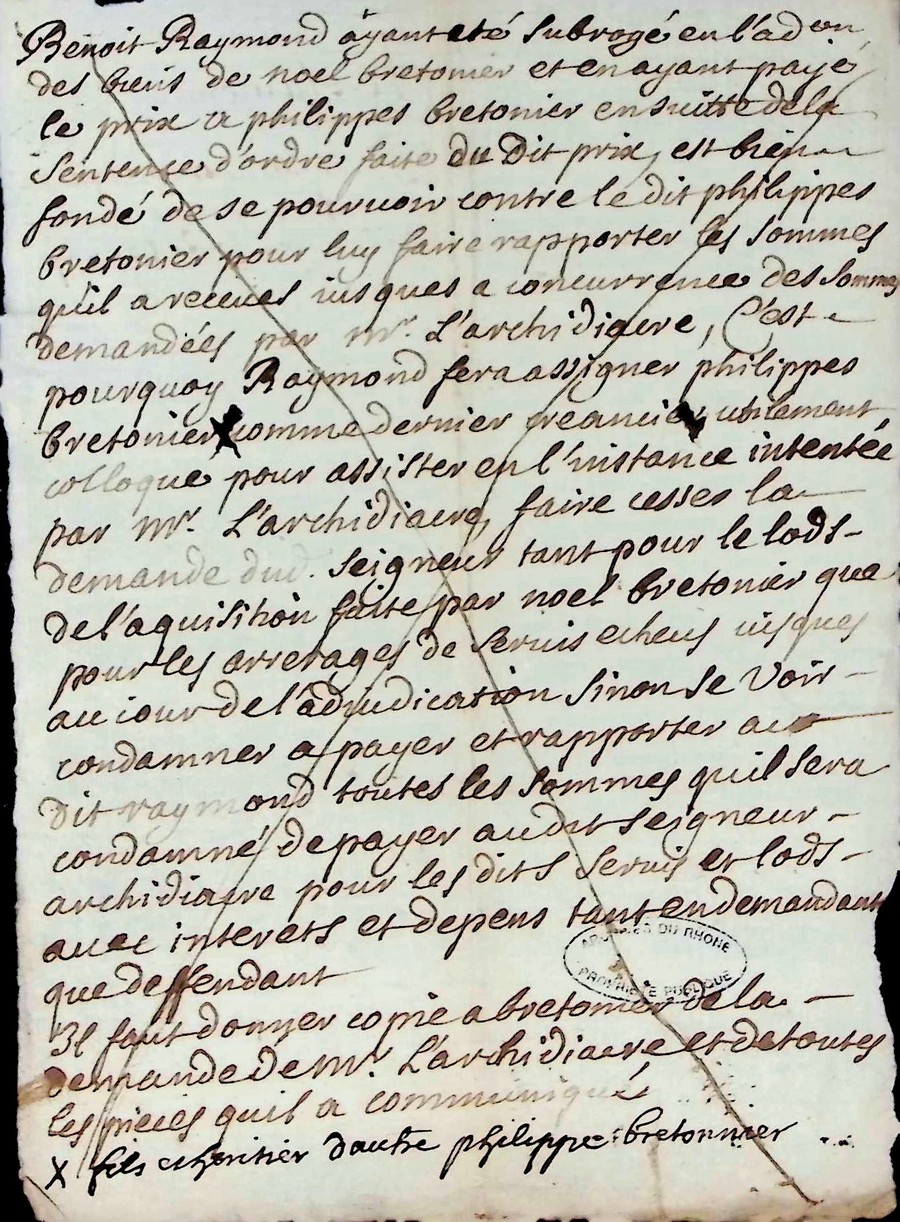 Benoit Raymond ayant eté subrogé en l'ad.on
des biens de noel bretonier et en ayant payé
le prix a philippes bretonier en suitte de la
sentence d'ordre faite du dit prix, est bien
fondé de se pourvoir contre le dit philippes
bretonier pour luy faire rapporter les sommes
qu'il a receues jusques a concurrence des sommes
demandées par mr. L'archidiacre, C'est
pourquoy Raymond fera assigner philippes
bretonier X comme dernier creancier utilement
colloque pour assister en l'instance intentée
par mr. L'archidiacre, faire cesser la
demande dud. seigneur tant pour le lods
de l'aquisition faite par noel bretonier que
pour les arrerages de servis echeus jusques
au jour de l'adjudication sinon se voir
condamner a payer et rapporter au
dit raymond toutes les sommes quil sera
condamné de payer au dit seigneur
archidiacre pour les dits servis et lods
avec interets et depens tant en demandant
que deffendant
ARCHIVES DU RHONE
PROPRIETE PUBLIQUE
Il faut donner copie a bretonier de la
demande de mr. L'archidiacre et de toutes
les pieces quil a communiqué
X fils et heritier d'autre philippe bretonnier